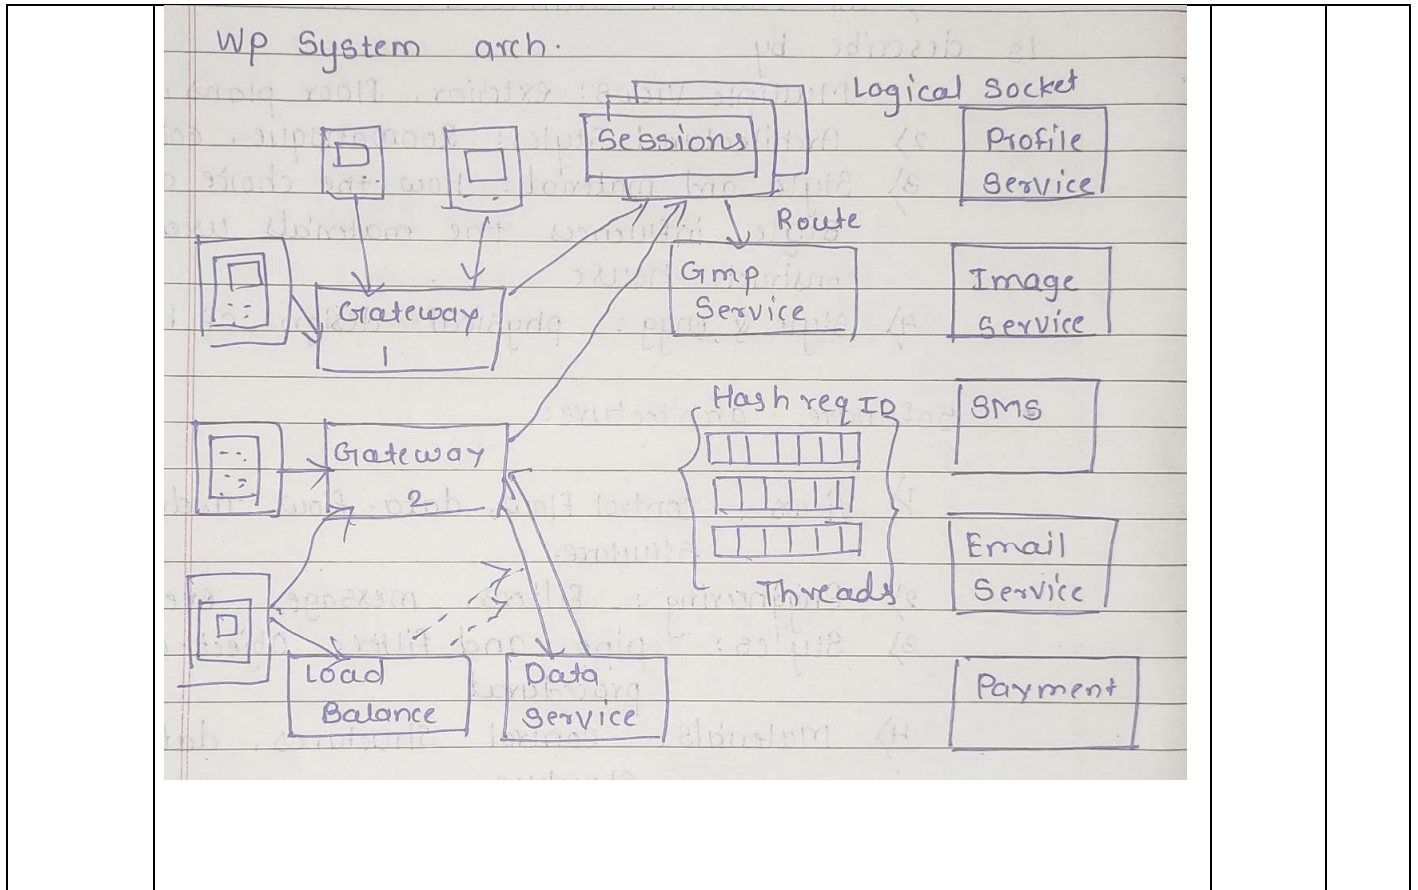 Wp System arch.
Logical Socket
Sessions
Profile
Service
Route
Gmp
Service
Image
Service
Gateway
1
Hash req ID
SMS
Gateway
2
Threads
Email
Service
Load
Balance
Data
Service
Payment